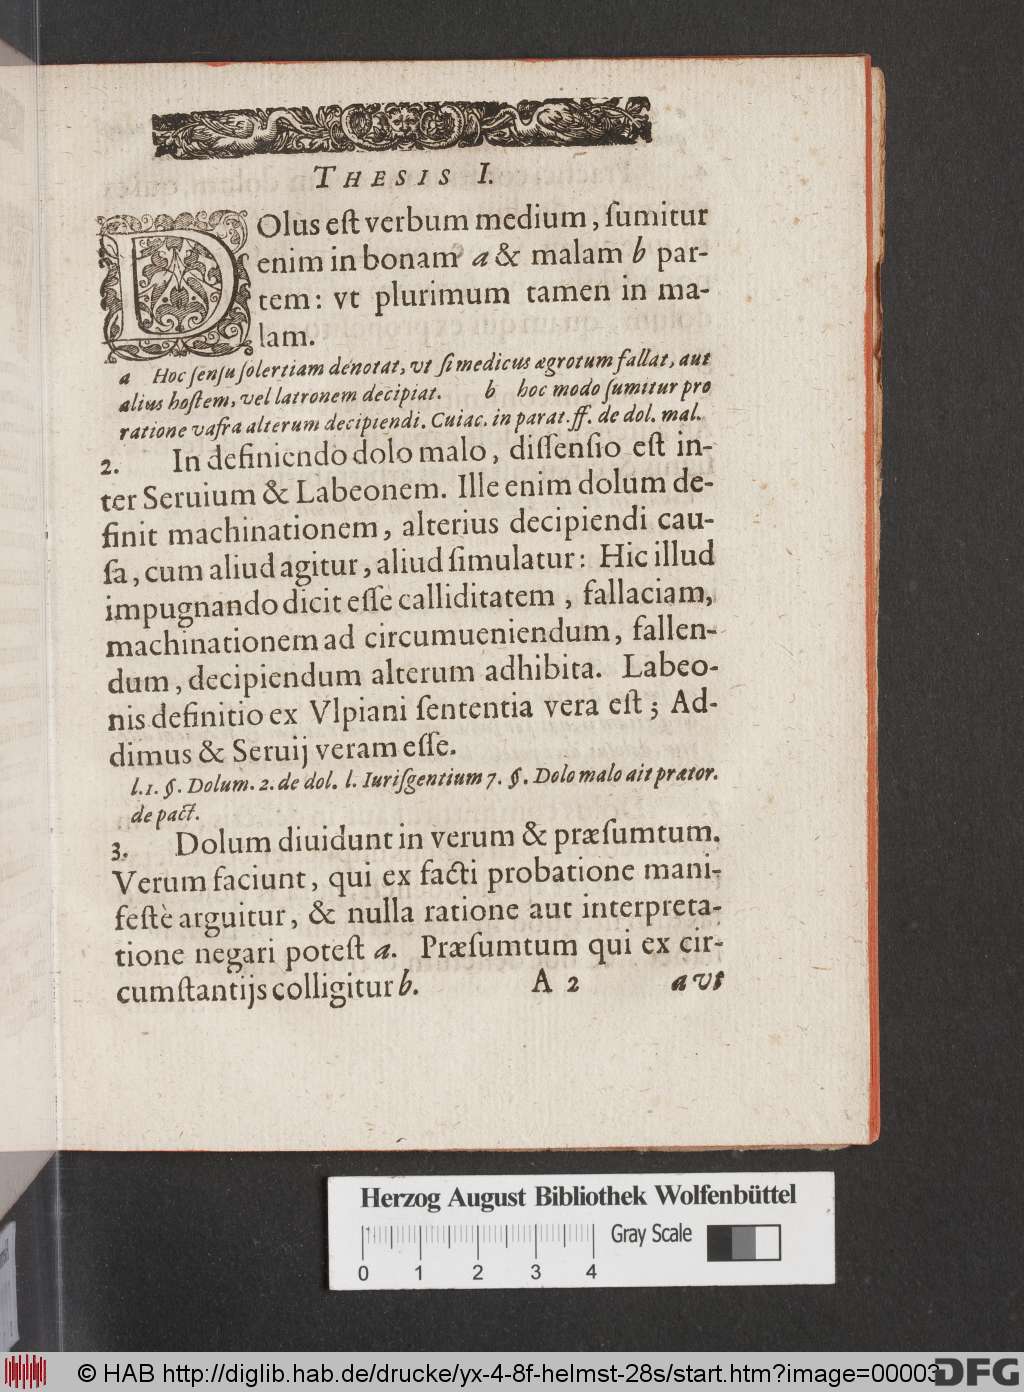 THESIS I.
DOlus eſt verbum medium, ſumitur
enim in bonam a & malam b par-
tem: vt plurimum tamen in ma-
lam.
a Hoc ſenſu ſolertiam denotat, vt ſi medicus ægrotum fallat, aut
alius hoſtem, vel latronem decipiat. b hoc modo ſumitur pro
ratione vafra alterum decipiendi. Cuiac. in parat. ff. de dol. mal.
2. In definiendo dolo malo, diſſenſio eſt in-
ter Seruium & Labeonem. Ille enim dolum de-
finit machinationem, alterius decipiendi cau-
ſa, cum aliud agitur, aliud ſimulatur: Hic illud
impugnando dicit eſſe calliditatem, fallaciam,
machinationem ad circumueniendum, fallen-
dum, decipiendum alterum adhibita. Labeo-
nis definitio ex Vlpiani ſententia vera eſt; Ad-
dimus & Seruij veram eſſe.
l. 1. §. Dolum. 2. de dol. l. Iuriſgentium 7. §. Dolo malo ait prætor.
de pact.
3. Dolum diuidunt in verum & præſumtum.
Verum faciunt, qui ex facti probatione mani-
feſtè arguitur, & nulla ratione aut interpreta-
tione negari poteſt a. Præſumtum qui ex cir-
cumſtantijs colligitur b. A 2 a vt
Herzog August Bibliothek Wolfenbüttel
Gray Scale
0 1 2 3 4
© HAB http://diglib.hab.de/drucke/yx-4-8f-helmst-28s/start.htm?image=00003
DFG